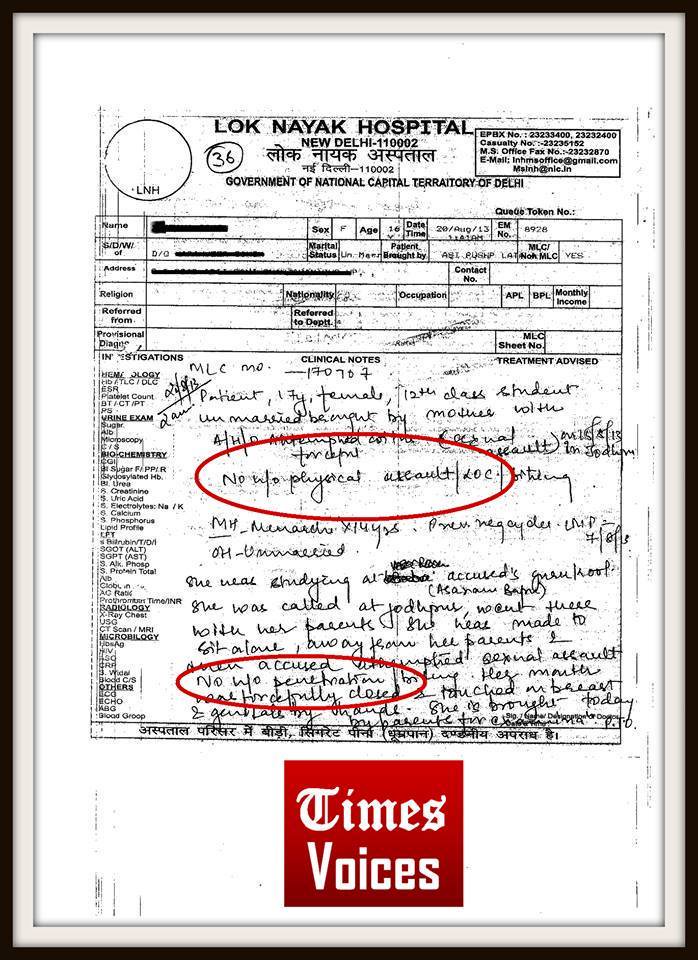 LOK NAYAK HOSPITAL
NEW DELHI-110002
36
लोक नायक अस्पताल
नई दिल्ली-110002
LNH
GOVERNMENT OF NATIONAL CAPITAL TERRAITORY OF DELHI
EPBX No. : 23233400, 23232400
Casualty No. :-23235152
M.S. Office Fax No.:-23232870
E-Mail: lnhmsoffice@gmail.com
Mslnh@nic.in
Queue Token No.:
Name Sex F Age 16 Y Date Time 20/Aug/13 EM No. 8928
S/D/W/ of D/O Marital Status Un Marr Patient Brought by ASI PUSHP LAT MLC/ Non MLC YES
Address Contact No.
Religion Nationality Occupation APL BPL Monthly Income
Referred from Referred to Deptt.
Provisional Diagnosis MLC Sheet No.
INVESTIGATIONS CLINICAL NOTES TREATMENT ADVISED
HEMATOLOGY
Hb / TLC / DLC
ESR
Platelet Count
BT / CT / PT
PS
URINE EXAM
Sugar
Alb
Microscopy
C / S
BIO-CHEMISTRY
Bl Sugar F/ PP/ R
Glydosylated Hb.
Bl. Urea
S. Creatinine
S. Uric Acid
S. Electrolytes: Na / K
S. Calcium
S. Phosphorus
Lipid Profile
LFT
s Bilirubin/T/D/I
SGOT (ALT)
SGPT (AST)
S. Alk. Phosp
S. Protein Total
Alb
Globulin
AG Ratio
Prothrombin Time/INR
RADIOLOGY
X-Ray Chest
USG
CT Scan / MRI
MICROBIOLOGY
HbsAg
HIV
ASO
CRP
S. Widal
Blood C/S
OTHERS
ECG
ECHO
ABG
Blood Group
MLC no. — 170707
2 am
Patient, 17y, female, 12th class student
unmarried brought by mother with
A/H/O attempted (sexual assault) on 15/8/13 in Jodhpur
forceful
No h/o physical assault / LOC / biting
MH - Menarche x 14 yrs. Prev. neg cycles. LMP - 7/8/13
OH - Unmarried.
She was studying at accused's gurukool
(Asaram Bapu)
She was called at Jodhpur, went there
with her parents. She was made to
sit alone, away from her parents &
then accused attempted sexual assault
No h/o penetration / biting Her mouth
was forcefully closed & touched on breast
& genitals by hands. She is brought today
by parents for P.T.O.
Sig. / Name/ Designation of Doctor
अस्पताल परिसर में बीड़ी, सिगरेट पीना (धूम्रपान) दण्डनीय अपराध है।
Times
Voices